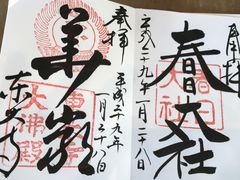 奉拝
春日大社
平成二十九年一月二十八日
奉拝
華厳
平成二十九年
一月二十八日
東大寺
大佛殿